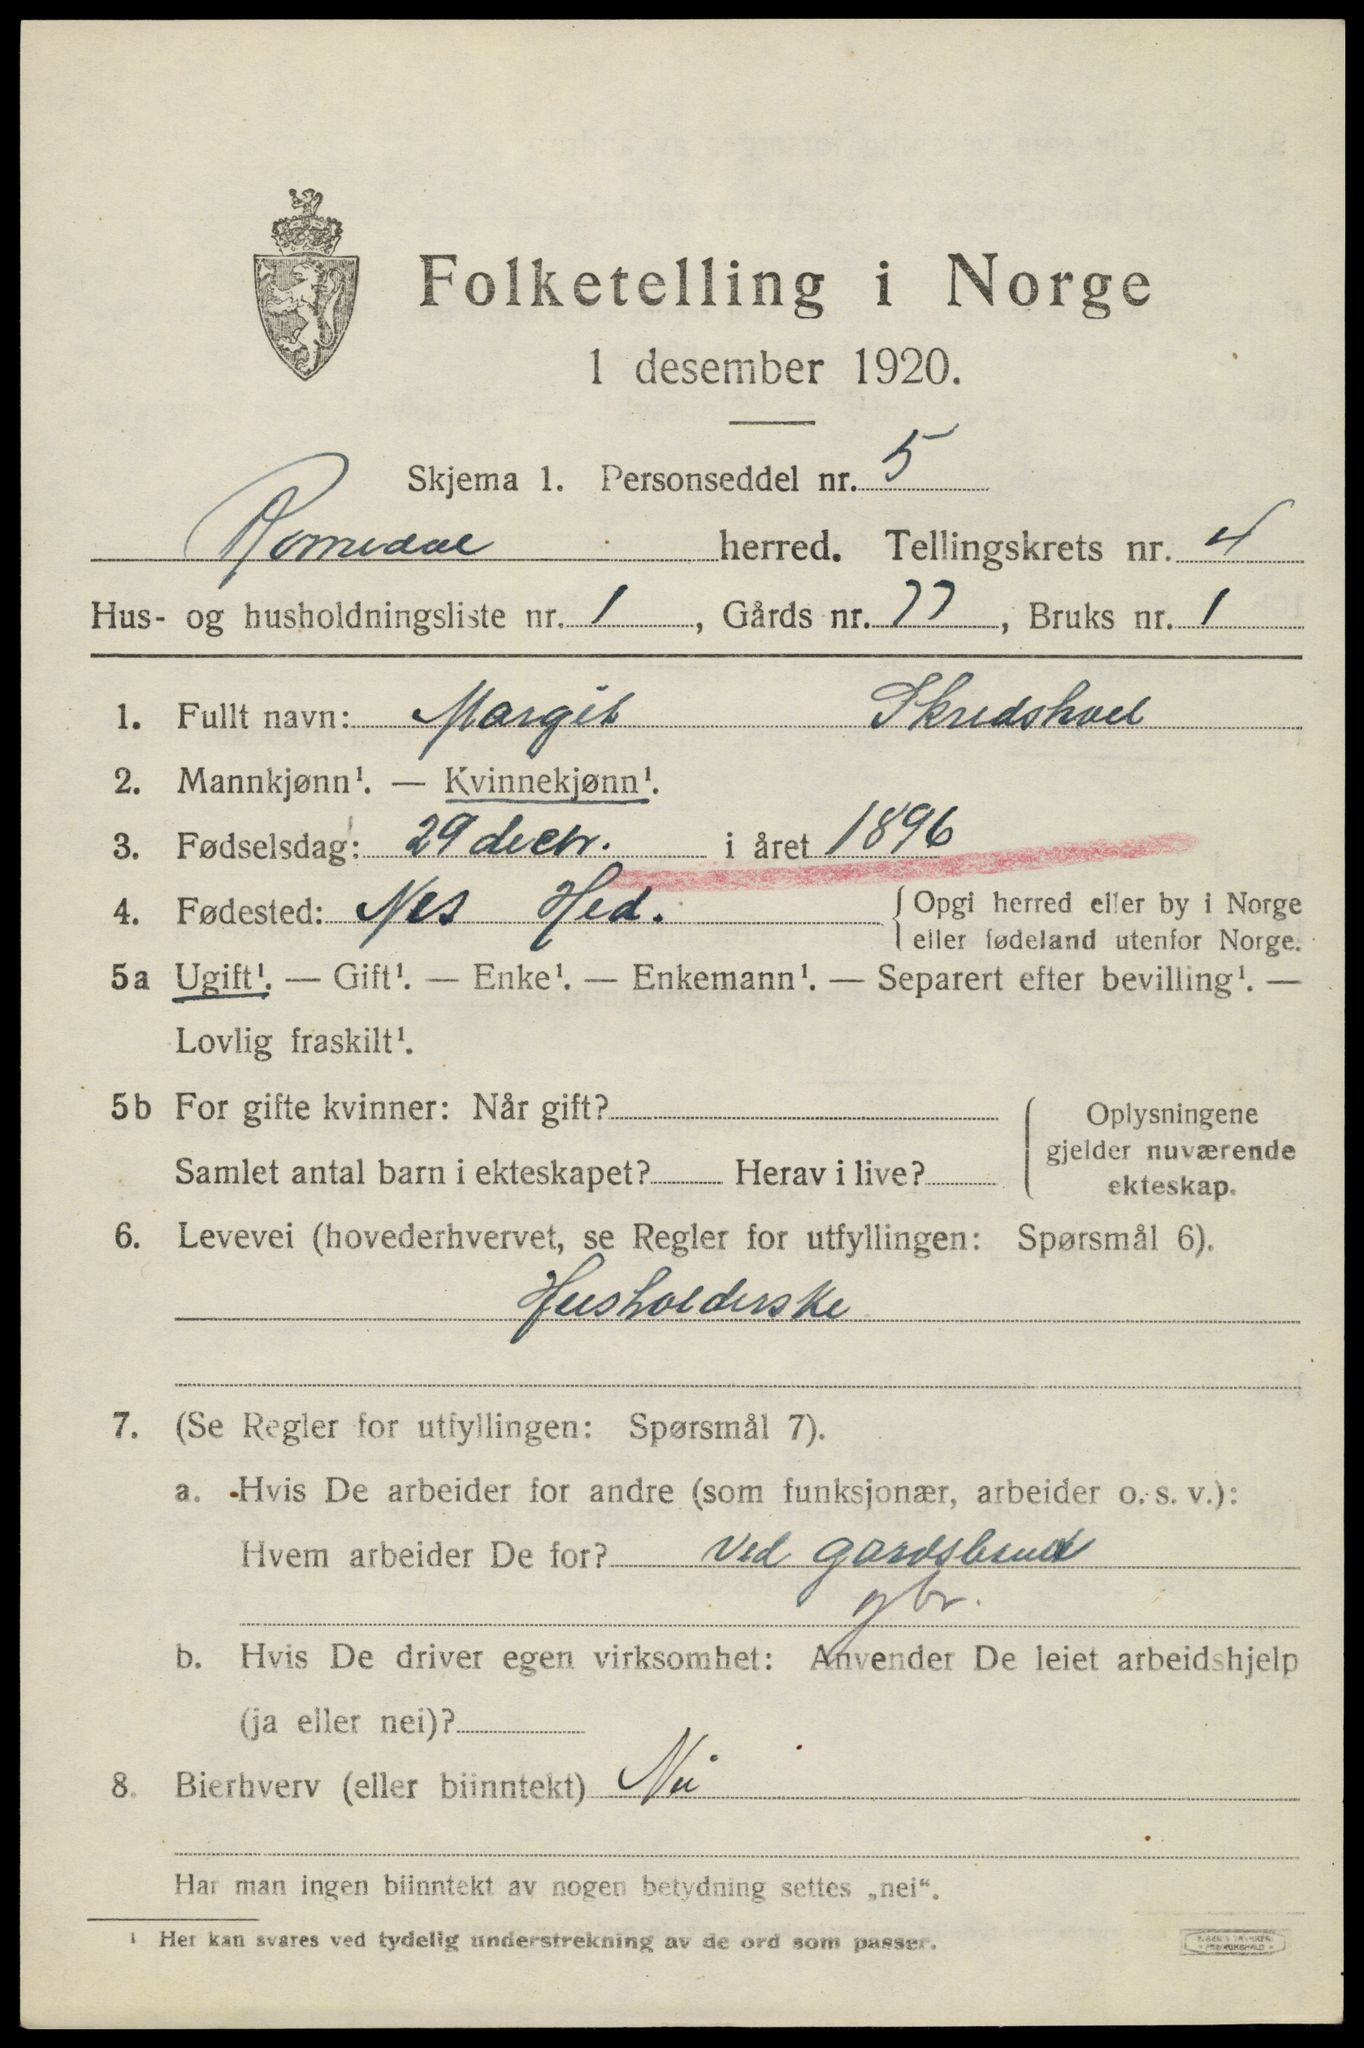 Folketelling i Norge
1 desember 1920.
Skjema 1. Personseddel nr. 5
Romedal herred. Tellingskrets nr. 4
Hus- og husholdningsliste nr. 1, Gårds nr. 77, Bruks nr. 1
1. Fullt navn: Margit Skredshvel
2. Mannkjønn¹. — Kvinnekjønn¹.
3. Fødselsdag: 29 decbr. i året 1896
4. Fødested: Nes Hed. { Opgi herred eller by i Norge
eller fødeland utenfor Norge.
5a Ugift¹. — Gift¹. — Enke¹. — Enkemann¹. — Separert efter bevilling¹. —
Lovlig fraskilt¹.
5b For gifte kvinner: Når gift?
Samlet antal barn i ekteskapet? Herav i live?
{ Oplysningene
gjelder nuværende
ekteskap.
6. Levevei (hovederhvervet, se Regler for utfyllingen: Spørsmål 6).
Husholderske
7. (Se Regler for utfyllingen: Spørsmål 7).
a. Hvis De arbeider for andre (som funksjonær, arbeider o. s. v.):
Hvem arbeider De for? Ved gardsbruk
gbr.
b. Hvis De driver egen virksomhet: Anvender De leiet arbeidshjelp
(ja eller nei)?
8. Bierhverv (eller biinntekt) Nei
Har man ingen biinntekt av nogen betydning settes „nei“.
¹ Her kan svares ved tydelig understrekning av de ord som passer.